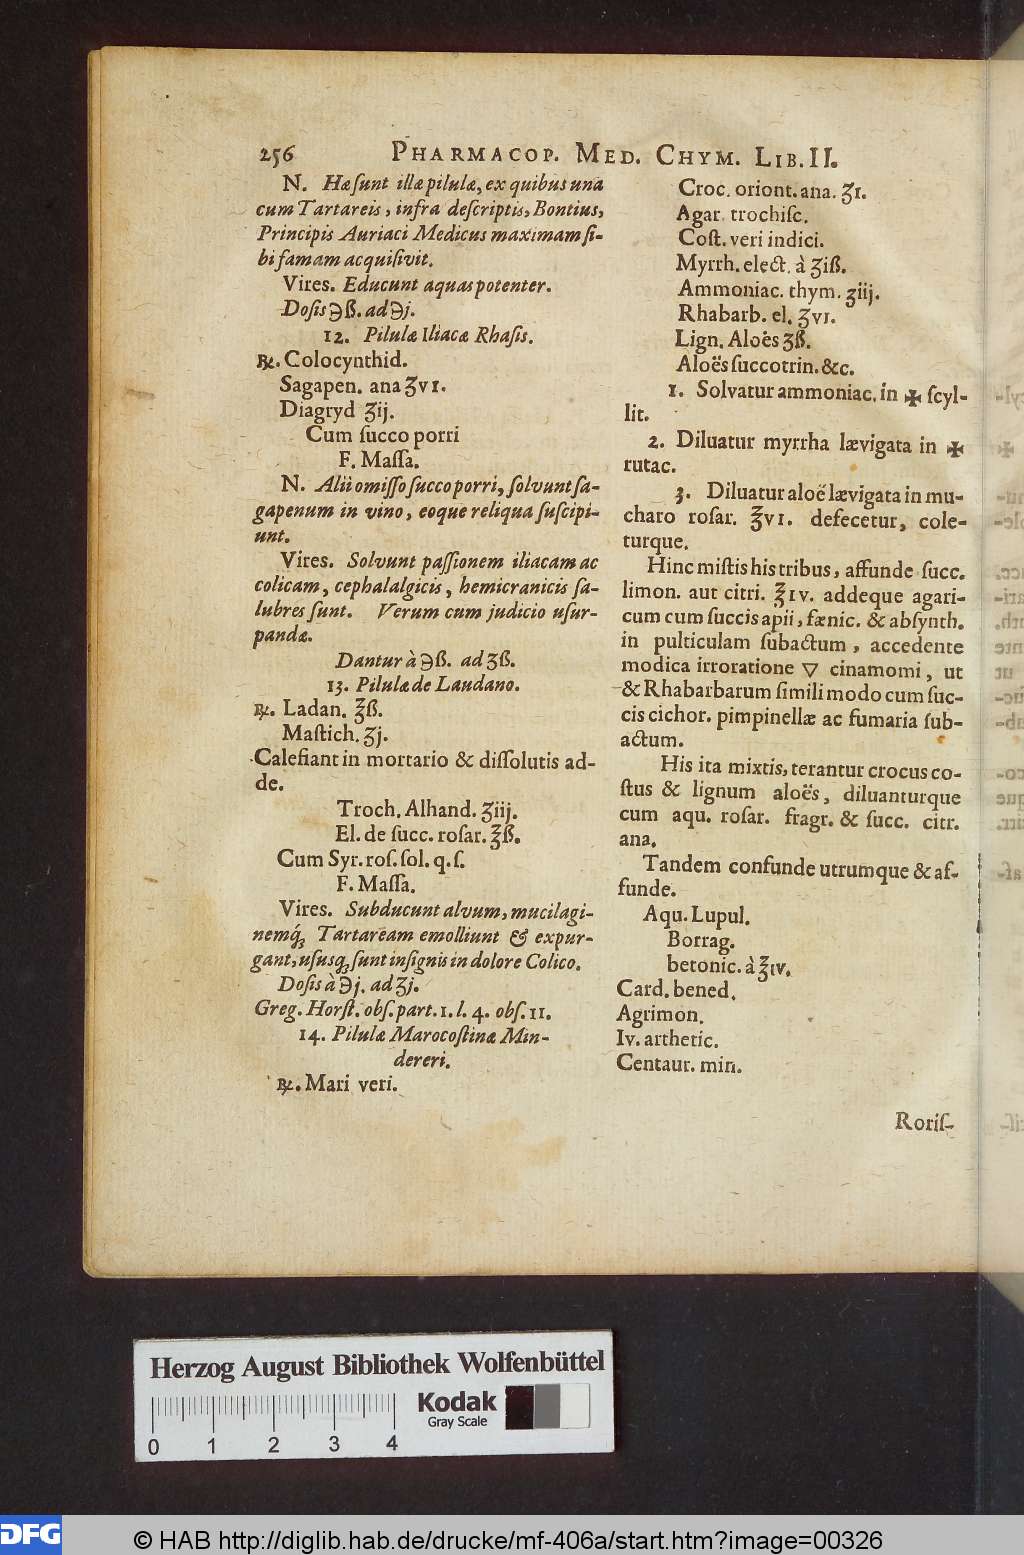 256 PHARMACOP. MED. CHYM. LIB. II.
N. Hæ ſunt illæ pilulæ, ex quibus una
cum Tartareis, infra deſcriptis, Bontius,
Principis Auriaci Medicus maximam ſi-
bi famam acquiſivit.
Vires. Educunt aquas potenter.
Doſis ℈ß. ad ℈j.
12. Pilulæ Iliacæ Rhaſis.
℞. Colocynthid.
Sagapen. ana ʒvı.
Diagryd ʒij.
Cum ſucco porri
F. Maſſa.
N. Alii omiſſo ſucco porri, ſolvunt ſa-
gapenum in vino, eoque reliqua ſuſcipi-
unt.
Vires. Solvunt paſſionem iliacam ac
colicam, cephalalgicis, hemicranicis ſa-
lubres ſunt. Verum cum judicio uſur-
pandæ.
Dantur à ℈ß. ad ʒß.
13. Pilulæ de Laudano.
℞. Ladan. ℥ß.
Maſtich. ʒj.
Calefiant in mortario & diſſolutis ad-
de.
Troch. Alhand. ʒiij.
El. de ſucc. roſar. ℥ß.
Cum Syr. roſ. ſol. q. ſ.
F. Maſſa.
Vires. Subducunt alvum, mucilagi-
nemq́; Tartaream emolliunt & expur-
gant, uſusq́; ſunt inſignis in dolore Colico.
Doſis à ℈j. ad ʒj.
Greg. Horſt. obſ. part. 1. l. 4. obſ. 11.
14. Pilulæ Marocoſtinæ Min-
dereri.
℞. Mari veri.
Croc. oriont. ana. ʒı.
Agar. trochiſc.
Coſt. veri indici.
Myrrh. elect. à ʒiß.
Ammoniac. thym. ʒiij.
Rhabarb. el. ʒvı.
Lign. Aloës ʒß.
Aloës ſuccotrin. &c.
1. Solvatur ammoniac. in ✠ ſcyl-
lit.
2. Diluatur myrrha lævigata in ✠
rutac.
3. Diluatur aloë lævigata in mu-
charo roſar. ℥vı. defecetur, cole-
turque.
Hinc miſtis his tribus, affunde ſucc.
limon. aut citri. ℥ıv. addeque agari-
cum cum ſuccis apii, fænic. & abſynth.
in pulticulam ſubactum, accedente
modica irroratione ▽ cinamomi, ut
& Rhabarbarum ſimili modo cum ſuc-
cis cichor. pimpinellæ ac fumaria ſub-
actum.
His ita mixtis, terantur crocus co-
ſtus & lignum aloës, diluanturque
cum aqu. roſar. fragr. & ſucc. citr.
ana.
Tandem confunde utrumque & af-
funde.
Aqu. Lupul.
Borrag.
betonic. à ℥ıv.
Card. bened.
Agrimon.
Iv. arthetic.
Centaur. min.
Roriſ-
Herzog August Bibliothek Wolfenbüttel
Kodak
Gray Scale
0 1 2 3 4
DFG
© HAB http://diglib.hab.de/drucke/mf-406a/start.htm?image=00326